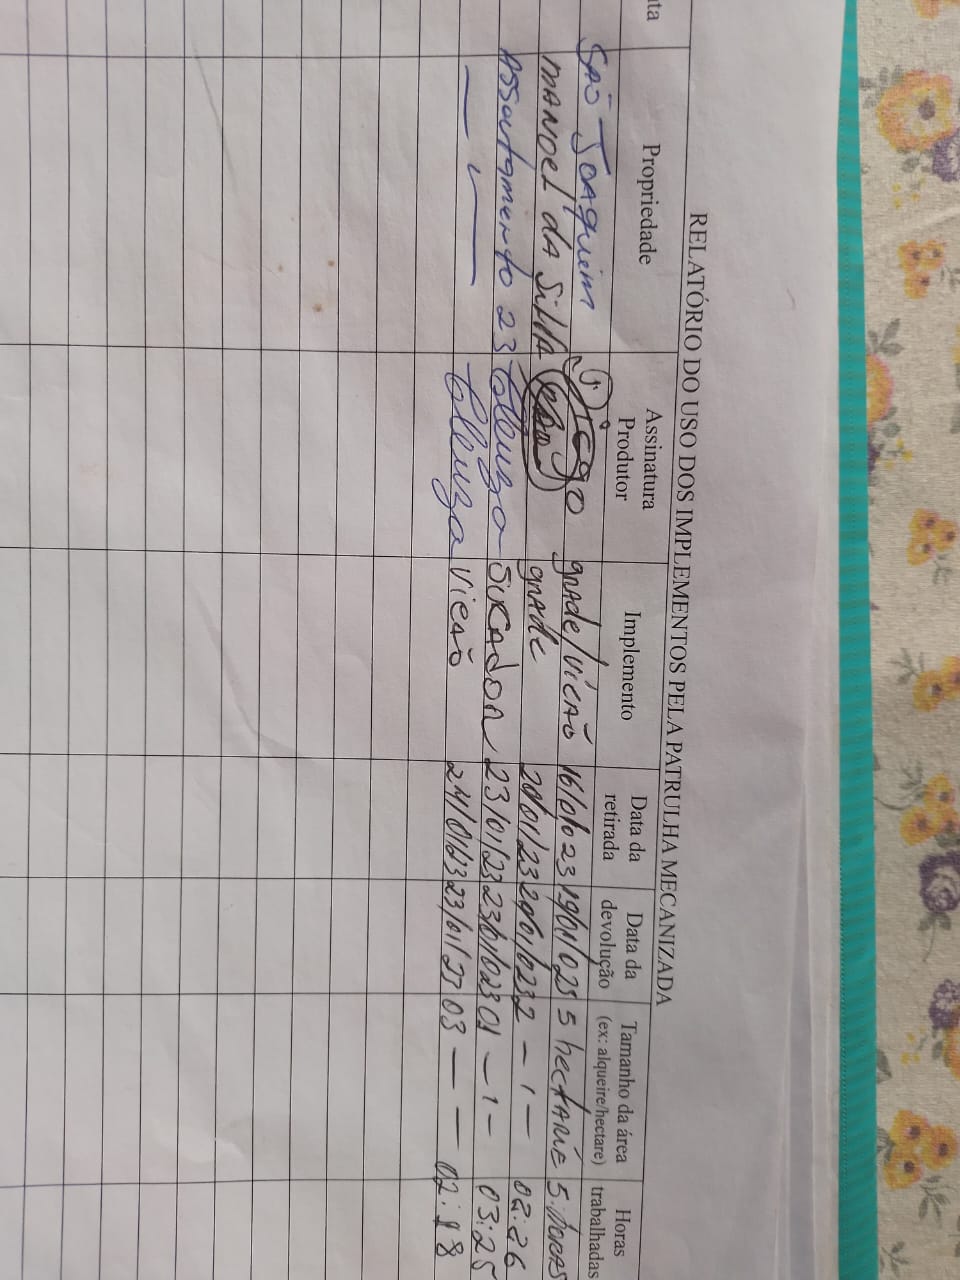 RELATÓRIO DO USO DOS IMPLEMENTOS PELA PATRULHA MECANIZADA
ta Propriedade Assinatura Produtor Implemento Data da retirada Data da devolução Tamanho da área (ex: alqueire/hectare) Horas trabalhadas
SÃO JOAQUIM Diego grade/vicão 16/01/023 19/01/023 5 hectarie 5. horas
MANOEL DA SILVA grade 20/01/23 20/01/023 2 - 1 - 02:26
Assentamento 23 Cleuza SUKADOR 23/01/23 23/01/023 01 - 1 - 03:25
— ״ — Cleuza Vicão 24/01/23 23/01/23 03 — — 02:18